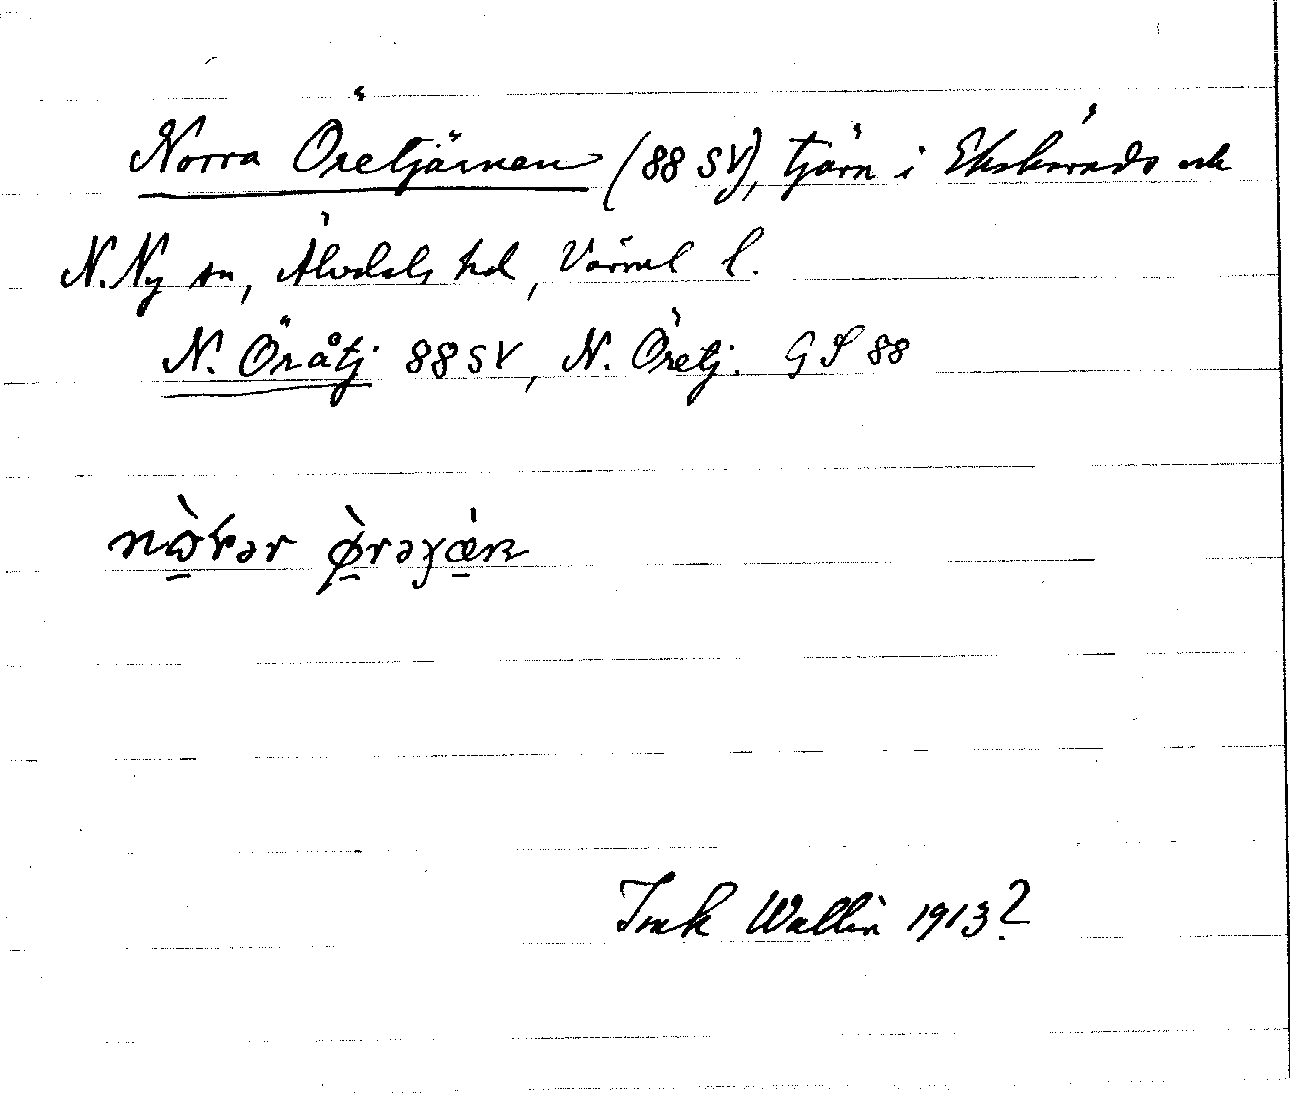 Norra Öretjärnen (88 SV), tjärn i Ekshärads och
N. Ny sn, Älvdals hd, Värml l.
N. Öråtj 88 SV, N. Öretj. GS 88
nò̱rər ø̱̀rəχæ̱̀n
Ink Wallin 1913?